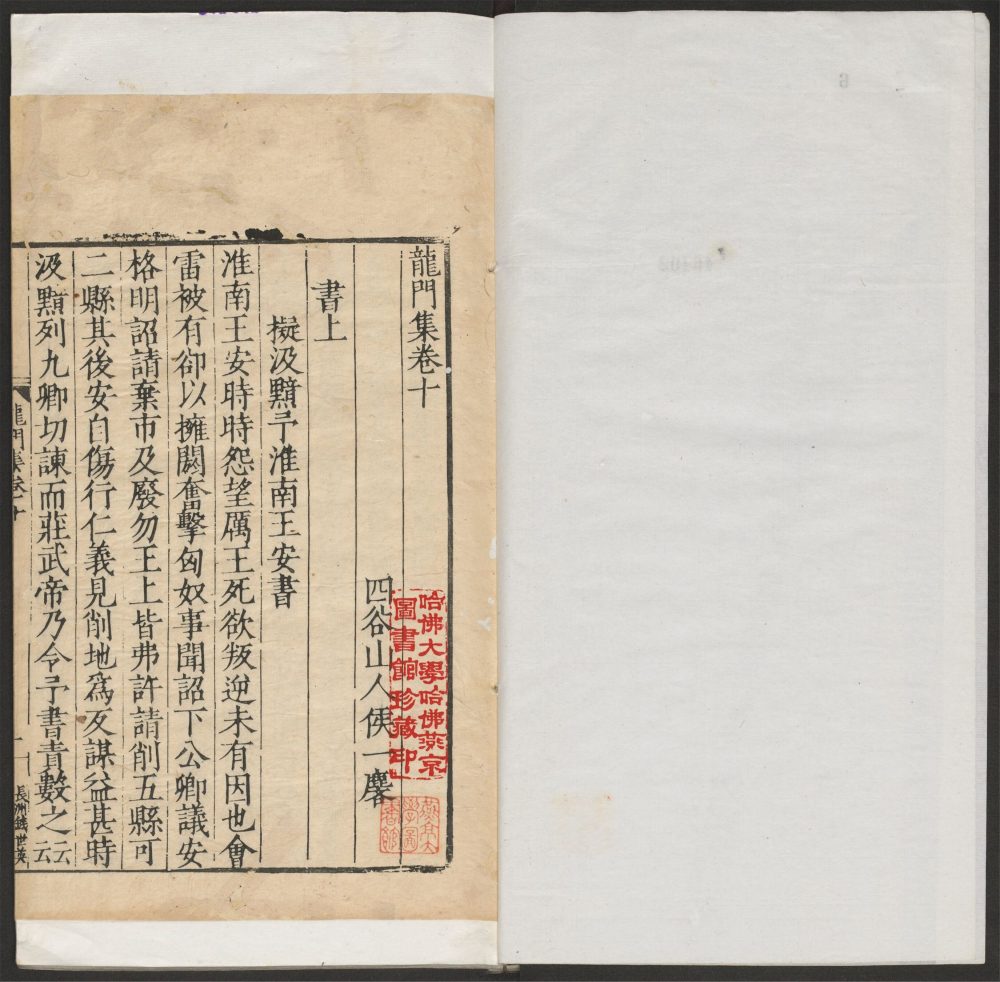 龍門集卷十
四谷山人侯一麐
書上
擬汲黯予淮南王安書
淮南王安時時怨望厲王死欲叛逆未有因也會
雷被有卻以擁閼奮擊匈奴事聞詔下公卿議安
格明詔請棄市及廢勿王上皆弗許請削五縣可
二縣其後安自傷行仁義見削地為反謀益甚時
汲黯列九卿切諫而莊武帝乃令予書責數之云云
龍門集卷十
一
長洲錢世英
哈佛大學哈佛燕京
圖書館珍藏印
燕京大
學圖
書館
6